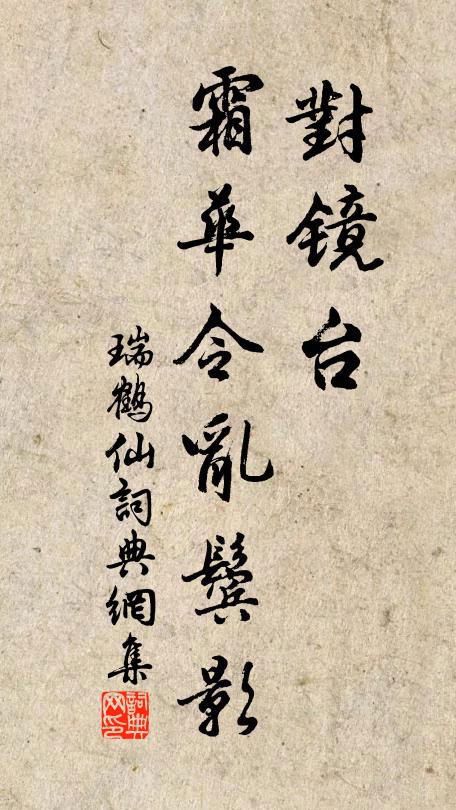 對镜台
霜華令亂鬓影
瑞鶴仙詞典網集
詞典网印